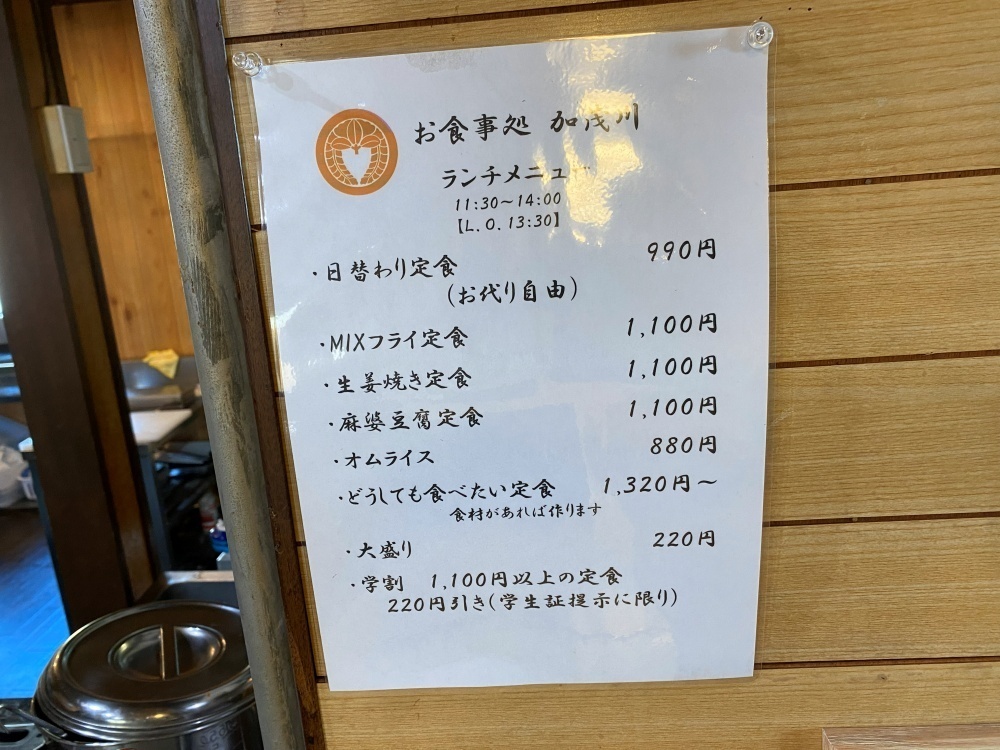 お食事処 加茂川
ランチメニュー
11:30～14:00
【L.O.13:30】
・日替わり定食 990円
(お代り自由)
・MIXフライ定食 1,100円
・生姜焼き定食 1,100円
・麻婆豆腐定食 1,100円
・オムライス 880円
・どうしても食べたい定食 1,320円～
食材があれば作ります
・大盛り 220円
・学割 1,100円以上の定食
220円引き(学生証提示に限り)